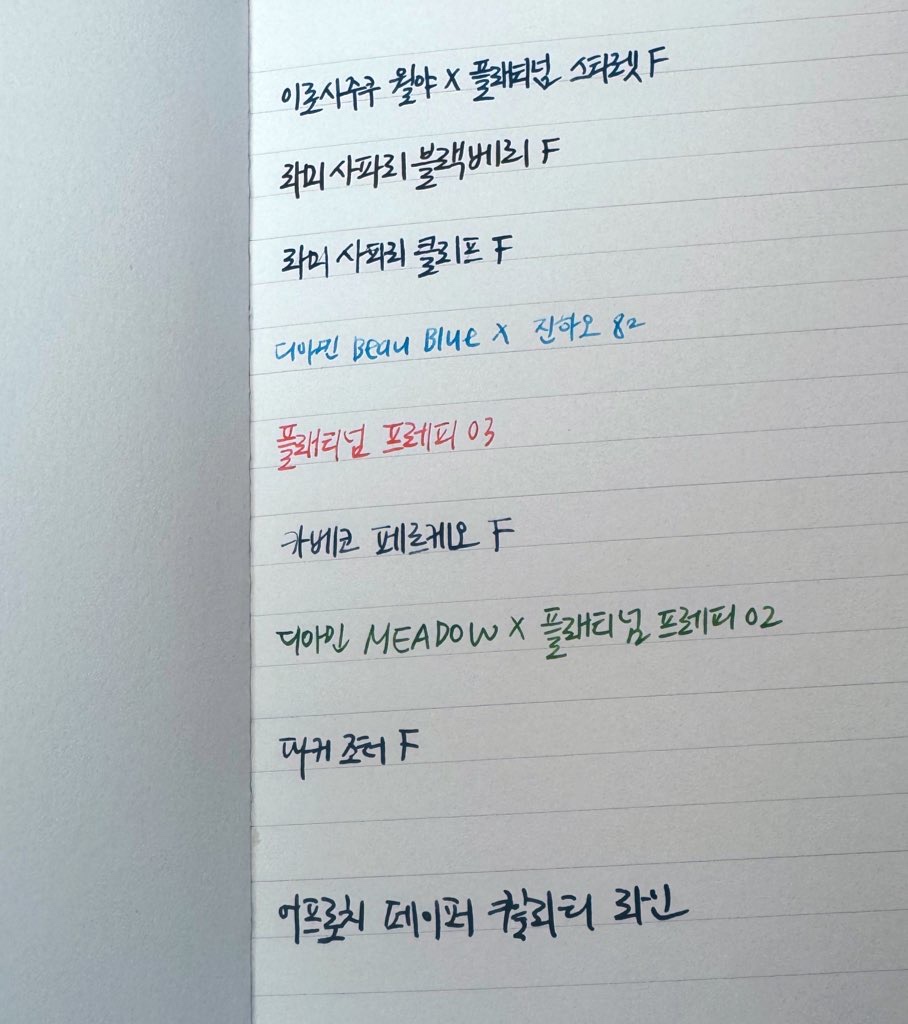 이로시주쿠 월야 X 플래티넘 스타렛 F
라미 사파리 블랙베리 F
라미 사파리 클리프 F
디아민 Beau Blue X 진하오 82
플래티넘 프레피 03
카베코 페르케오 F
디아민 MEADOW X 플래티넘 프레피 02
파커 조터 F
어프로치 페이퍼 퀄리티 라인